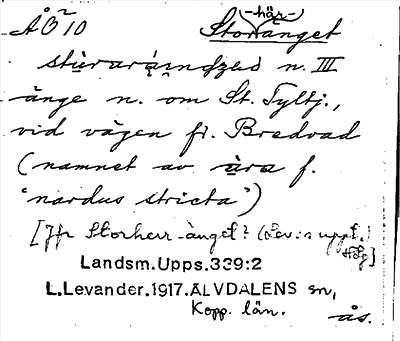 ÅÖ~10 Stor-här-änget
sturarạ́ndʒeð n. III
änge n. om St. Tyltj.,
vid vägen fr. Bredvad
(namnet av ära f.
"nardus stricta")
[Jfr Storherr-änget? (Lev:s uppt.)
Landsm.Upps.339:2
L.Levander.1917.ÄLVDALENS sn,
Kopp. län.
ås.